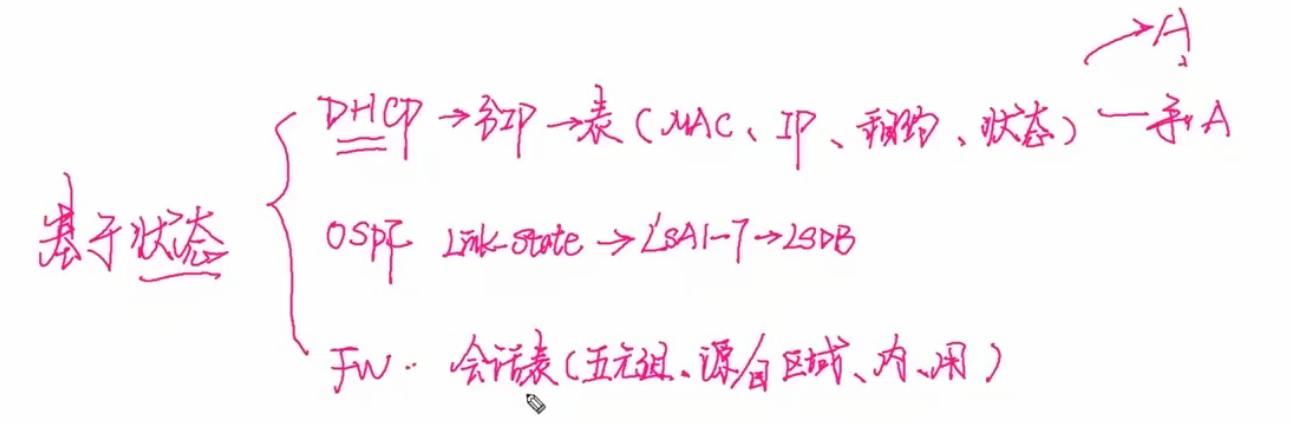 →A
DHCP →分IP→表(MAC、IP、租约、状态)—A
基于状态
OSPF Link-state→LSA1-7→LSDB
FW.. 会话表(五元组、源/目区域、内、用)